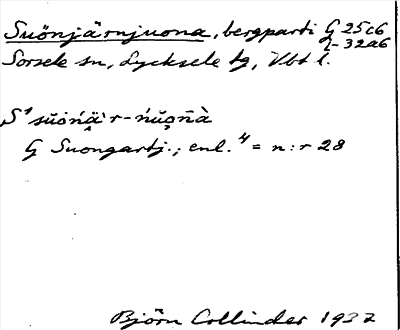 Suönjärnjuona, bergparti G 25c6
I-32a6
Sorsele sn, Lycksele tg, Vbt l.
S⁴ sŭòńä̀r-ńŭǫñà
G Suongartj.; enl. ⁴ = n:r 28
Björn Collinder 1937